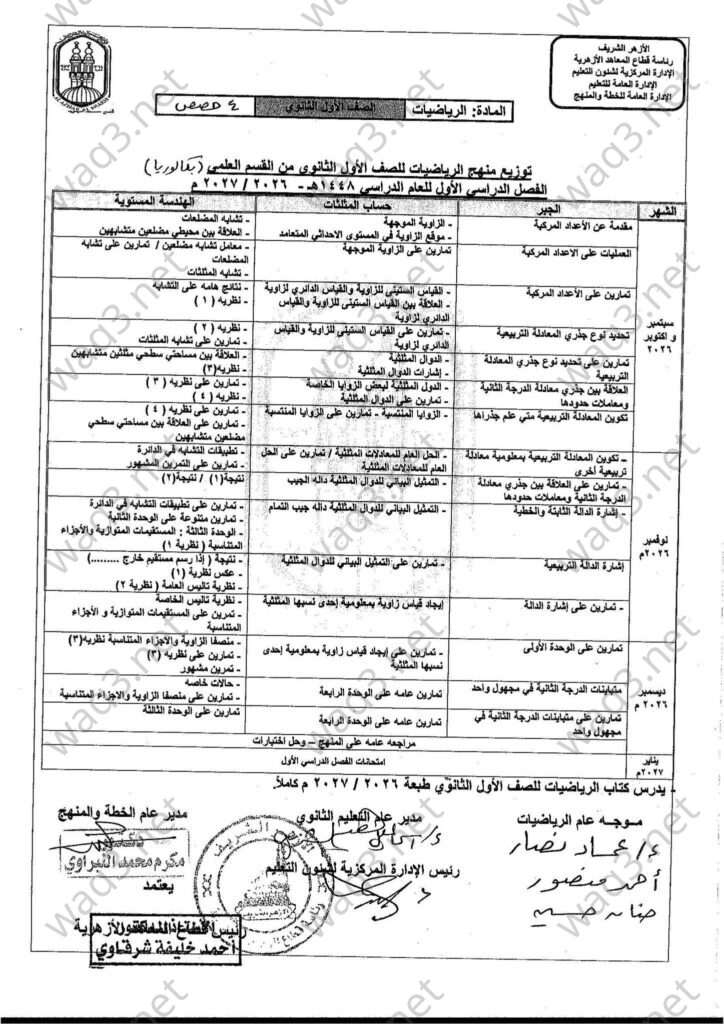 الأزهر الشريف
رئاسة قطاع المعاهد الأزهرية
الإدارة المركزية لشئون التعليم
الإدارة العامة للتعليم
الإدارة العامة للخطة والمنهج
المادة: الرياضيات
الصف الأول الثانوي
٤ حصص
توزيع منهج الرياضيات للصف الأول الثانوي من القسم العلمي (بكالوريا)
الفصل الدراسي الأول للعام الدراسي ١٤٤٨هـ - ٢٠٢٦ / ٢٠٢٧ م
الشهر
الجبر
حساب المثلثات
الهندسة المستوية
سبتمبر
و أكتوبر
٢٠٢٦
مقدمة عن الأعداد المركبة
- الزاوية الموجهة
- موقع الزاوية في المستوى الاحداثي المتعامد
- تشابه المضلعات
- العلاقة بين محيطي مضلعين متشابهين
العمليات على الاعداد المركبة
تمارين على الزاوية الموجهة
- معامل تشابه مضلعين / تمارين على تشابه
المضلعات
- تشابه المثلثات
تمارين على الأعداد المركبة
- القياس الستيني للزاوية والقياس الدائري لزاوية
- العلاقة بين القياس الستيني للزاوية والقياس
الدائري لزاوية
- نتائج هامه على التشابه
- نظريه ( ١ )
تحديد نوع جذري المعادلة التربيعية
- تمارين على القياس الستيني للزاوية والقياس
الدائري لزاوية
- نظريه ( ٢ )
- تمارين على تشابه المثلثات
تمارين على تحديد نوع جذري المعادلة
التربيعية
- الدوال المثلثية
- إشارات الدوال المثلثية
- العلاقة بين مساحتي سطحي مثلثين متشابهين
- نظريه(٣)
العلاقة بين جذري معادلة الدرجة الثانية
ومعاملات حدودها
- الدول المثلثية لبعض الزوايا الخاصة
- تمارين على الدوال المثلثية
- تمارين على نظريه ( ٣ )
- نظريه ( ٤ )
تكوين المعادلة التربيعية متي علم جذراها
- الزوايا المنتسبة - تمارين على الزوايا المنتسبة
- تمارين على نظريه ( ٤ )
- تمارين على العلاقة بين مساحتي سطحي
مضلعين متشابهين
نوفمبر
٢٠٢٦م
- تكوين المعادلة التربيعية بمعلومية معادلة
تربيعية أخري
- الحل العام للمعادلات المثلثية / تمارين على الحل
العام للمعادلات المثلثية
- تطبيقات التشابه في الدائرة
- تمارين على التمرين المشهور
- تمارين على العلاقة بين جذري معادلة
الدرجة الثانية ومعاملات حدودها
- التمثيل البياني للدوال المثلثية داله الجيب
نتيجة(١) / نتيجة(٢)
- إشارة الدالة الثابتة والخطية
- التمثيل البياني للدوال المثلثية داله جيب التمام
- تمارين على تطبيقات التشابه في الدائرة
- تمارين متنوعة على الوحدة الثانية
- الوحدة الثالثة : المستقيمات المتوازية والأجزاء
المتناسبة ( نظرية ١ )
إشارة الدالة التربيعية
- تمارين على التمثيل البياني للدوال المثلثية
- نتيجة ( إذا رسم مستقيم خارج ........)
- عكس نظرية (١)
- نظرية تاليس العامة ( نظرية ٢ )
- تمارين على إشارة الدالة
إيجاد قياس زاوية بمعلومية إحدى نسبها المثلثية
- نظرية تاليس الخاصة
- تمرين على المستقيمات المتوازية و الأجزاء
المتناسبة
ديسمبر
٢٠٢٦ م
تمارين على الوحدة الأولى
- تمارين على إيجاد قياس زاوية بمعلومية إحدى
نسبها المثلثية
- منصفا الزاوية والأجزاء المتناسبة نظريه(٣)
- تمارين على نظريه (٣)
- تمرين مشهور
متباينات الدرجة الثانية في مجهول واحد
تمارين عامه على الوحدة الرابعة
- حالات خاصه
- تمارين على منصفا الزاوية والاجزاء المتناسبة
تمارين على متباينات الدرجة الثانية في
مجهول واحد
تمارين عامه على الوحدة الرابعة
تمارين على الوحدة الثالثة
مراجعه عامه على المنهج – وحل اختبارات
يناير
٢٠٢٧م
امتحانات الفصل الدراسي الأول
- يدرس كتاب الرياضيات للصف الأول الثانوي طبعة ٢٠٢٦ / ٢٠٢٧ م كاملاً.
موجه عام الرياضيات
مدير عام التعليم الثانوي
مدير عام الخطة والمنهج
د/ عماد نصار
أحمد منصور
حنان حسين
دكتور
مكرم محمد النبراوي
رئيس الإدارة المركزية لشئون التعليم
يعتمد
رئيس قطاع المعاهد الأزهرية
أحمد خليفة شرقاوي
waq3.net